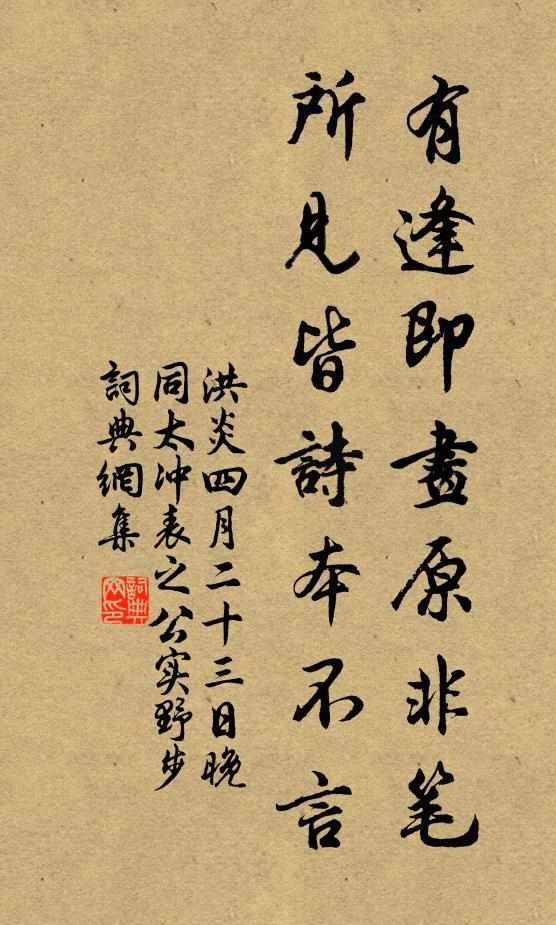 有逢即畫原非笔
所見皆詩本不言
洪炎四月二十三日晚
同太冲表之公实野步
詞典網集
詞典网印